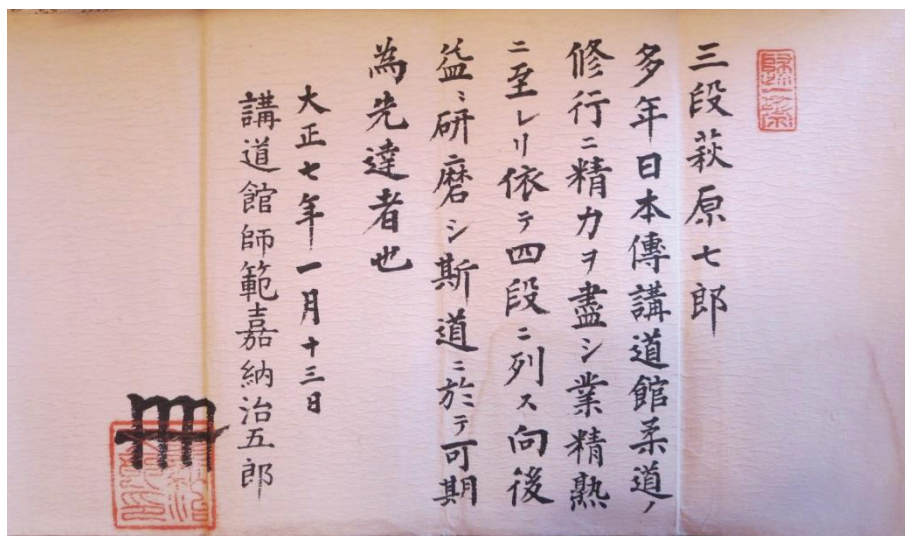 三段萩原七郎
多年日本傳講道館柔道ノ
修行ニ精力ヲ盡シ業精熟
ニ至レリ依テ四段ニ列ス向後
益〻研磨シ斯道ニ於テ可期
為先達者也
大正七年一月十三日
講道館師範嘉納治五郎